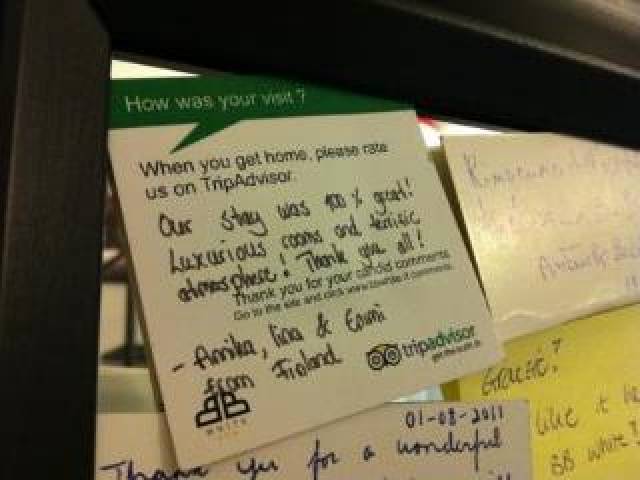 How was your visit?
When you get home, please rate
us on TripAdvisor.
Our stay was 100 % great!
Luxurious rooms and terrific
atmosphere! Thank you all!
Thank you for your candid comments.
Go to the site and click
- Annika, Iina &
from Finland
tripadvisor
get the truth
BB
WHITE
01-08-2011
Thank you for a wonderful
Grazie!
like it he
BB white?